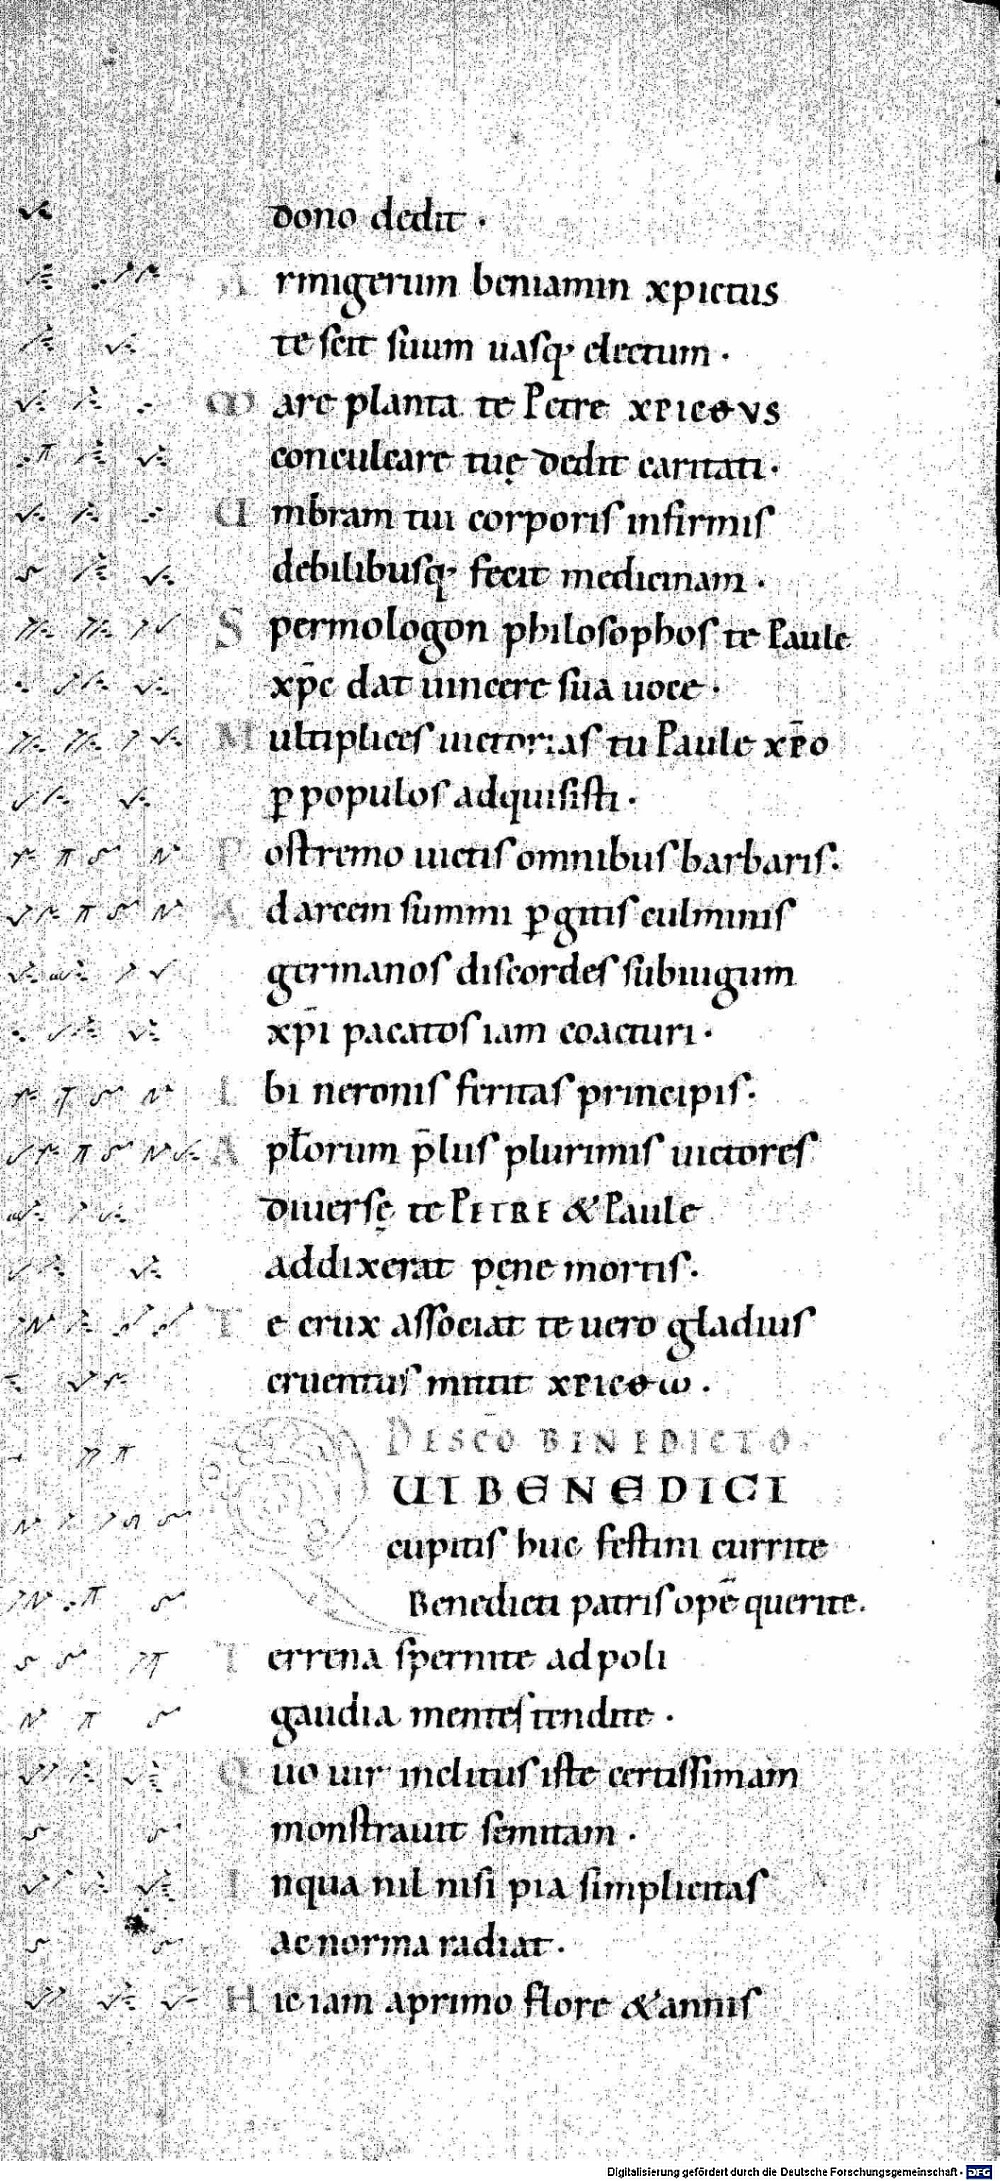 dono dedit ·
Armigerum beniamin xpictus
te scit suum uasq; electum ·
Mare planta te Petre xpicθus
conculcare tuę dedit caritati ·
Umbram tui corporis infirmis
debilibusq; fecit medicinam ·
Spermologon philosophos te Paule
xp̄c dat uincere sua uoce ·
Multiplices uictorias tu Paule xp̄o
ꝑ populos adquisisti ·
Postremo uictis omnibus barbaris ·
Ad arcem summi ꝑgitis culminis
germanos discordes sub iugum
xp̄i pacatos iam coacturi ·
Ibi neronis feritas principis ·
Apl̄orum p̄lus plurimis uictores
diuersę te PETRE & Paule
addixerat pęne mortis ·
Te crux associat te uero gladius
cruentus mittit xpicθω ·
DE SC̄O BENEDICTO ·
QUI BENEDICI
cupitis huc festini currite
Benedicti patris opē querite ·
Terrena spernite ad poli
gaudia mentes tendite ·
Quo uir inclitus iste certissimam
monstrauit semitam ·
In qua nil nisi pia simplicitas
ac norma radiat ·
Hic iam a primo flore & annis
Digitalisierung gefördert durch die Deutsche Forschungsgemeinschaft - DFG